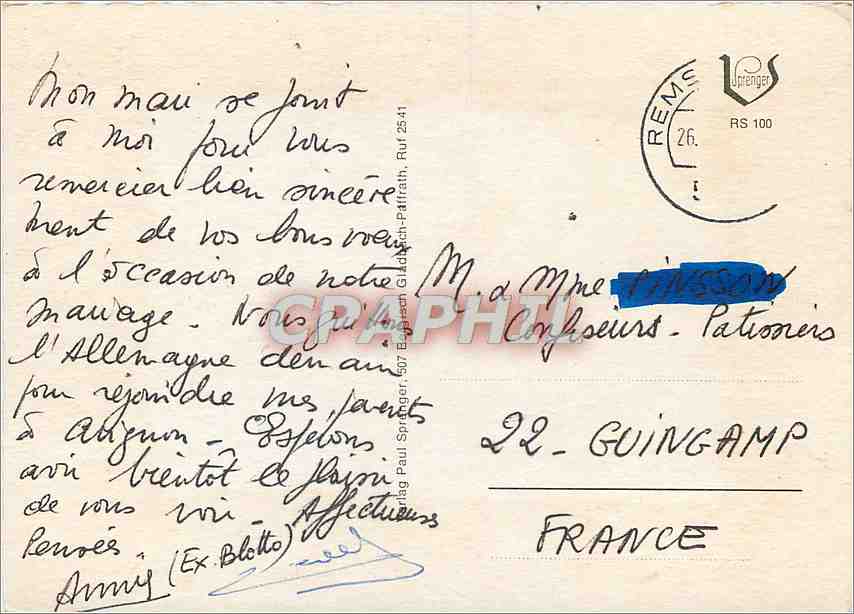 Mon mari se joint
à moi pour vous
remercier bien sincère
ment de vos bons voeux
à l'occasion de notre
mariage. Nous quittons
l'Allemagne demain
pour rejoindre mes parents
à Avignon. Espérons
avoir bientôt le plaisir
de vous voir. Affectueuses
Pensées.
Annie (Ex. Blotto)
Verlag Paul Sprenger, 507 Bergisch Gladbach-Paffrath, Ruf 2541
Sprenger
RS 100
REMS
26.
M. & Mme
Confiseurs - Patissiers
22 - GUINGAMP
FRANCE
CPAPHIL